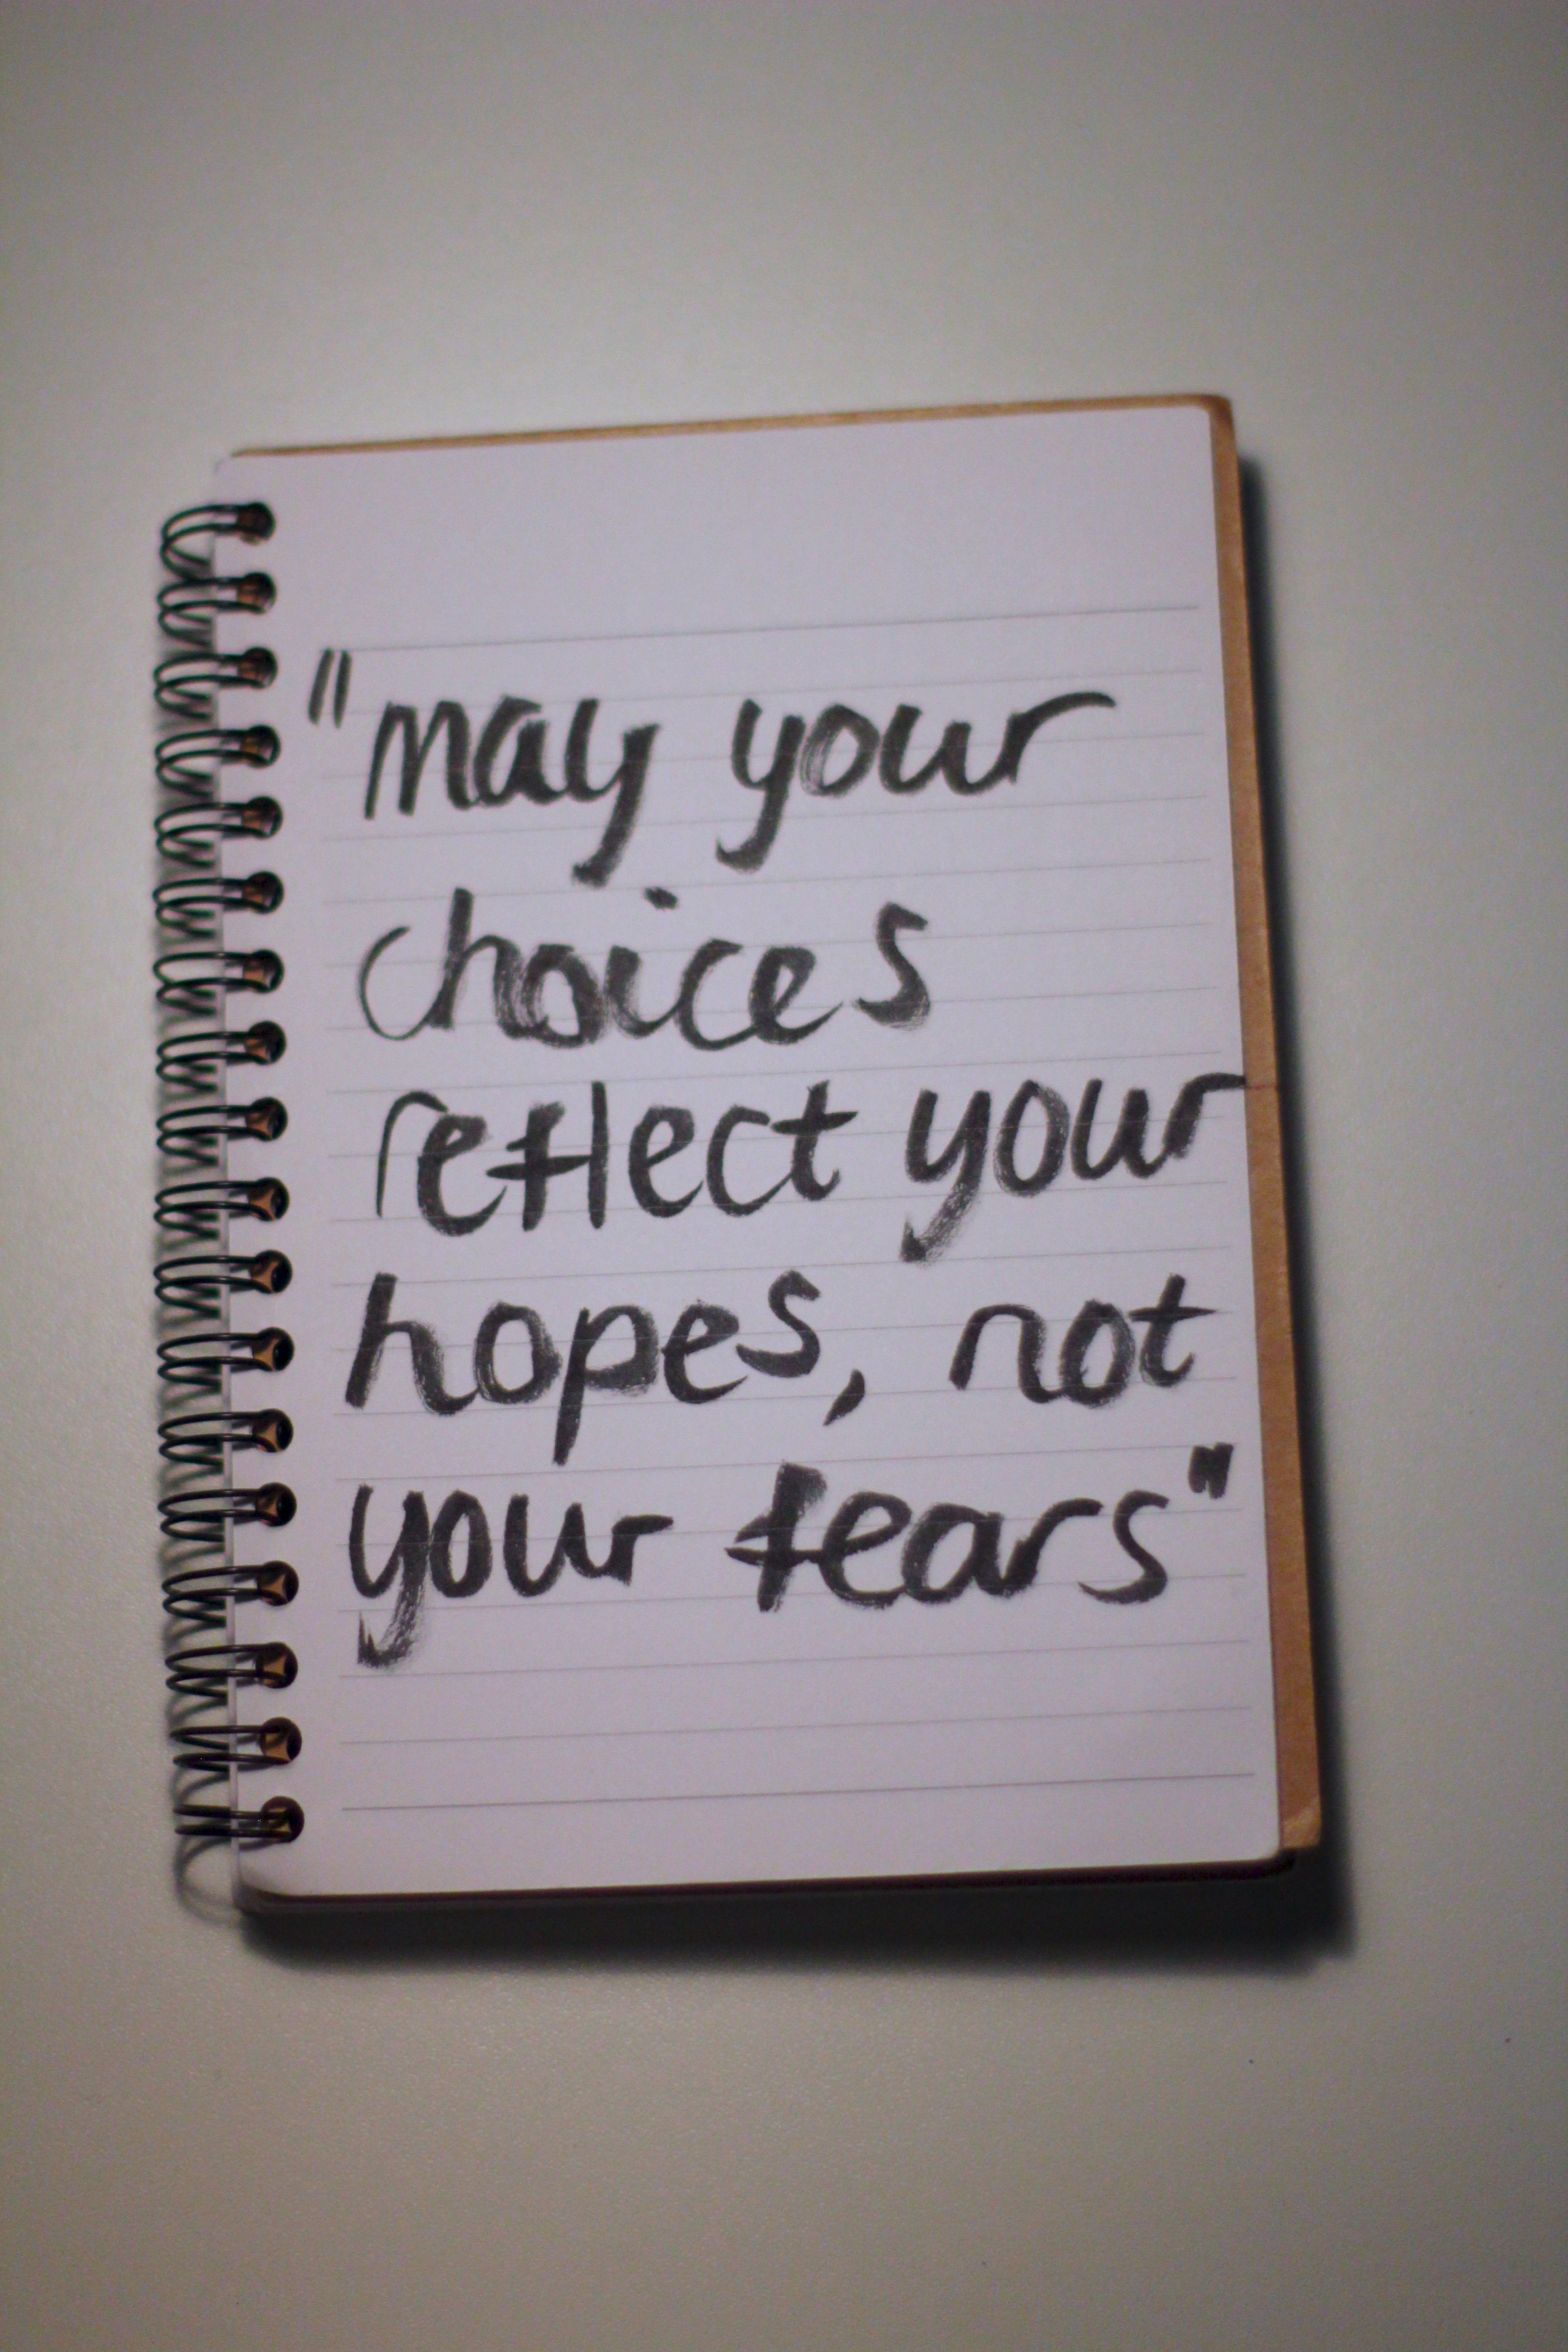 "may your
choices
reflect your
hopes, not
your tears"